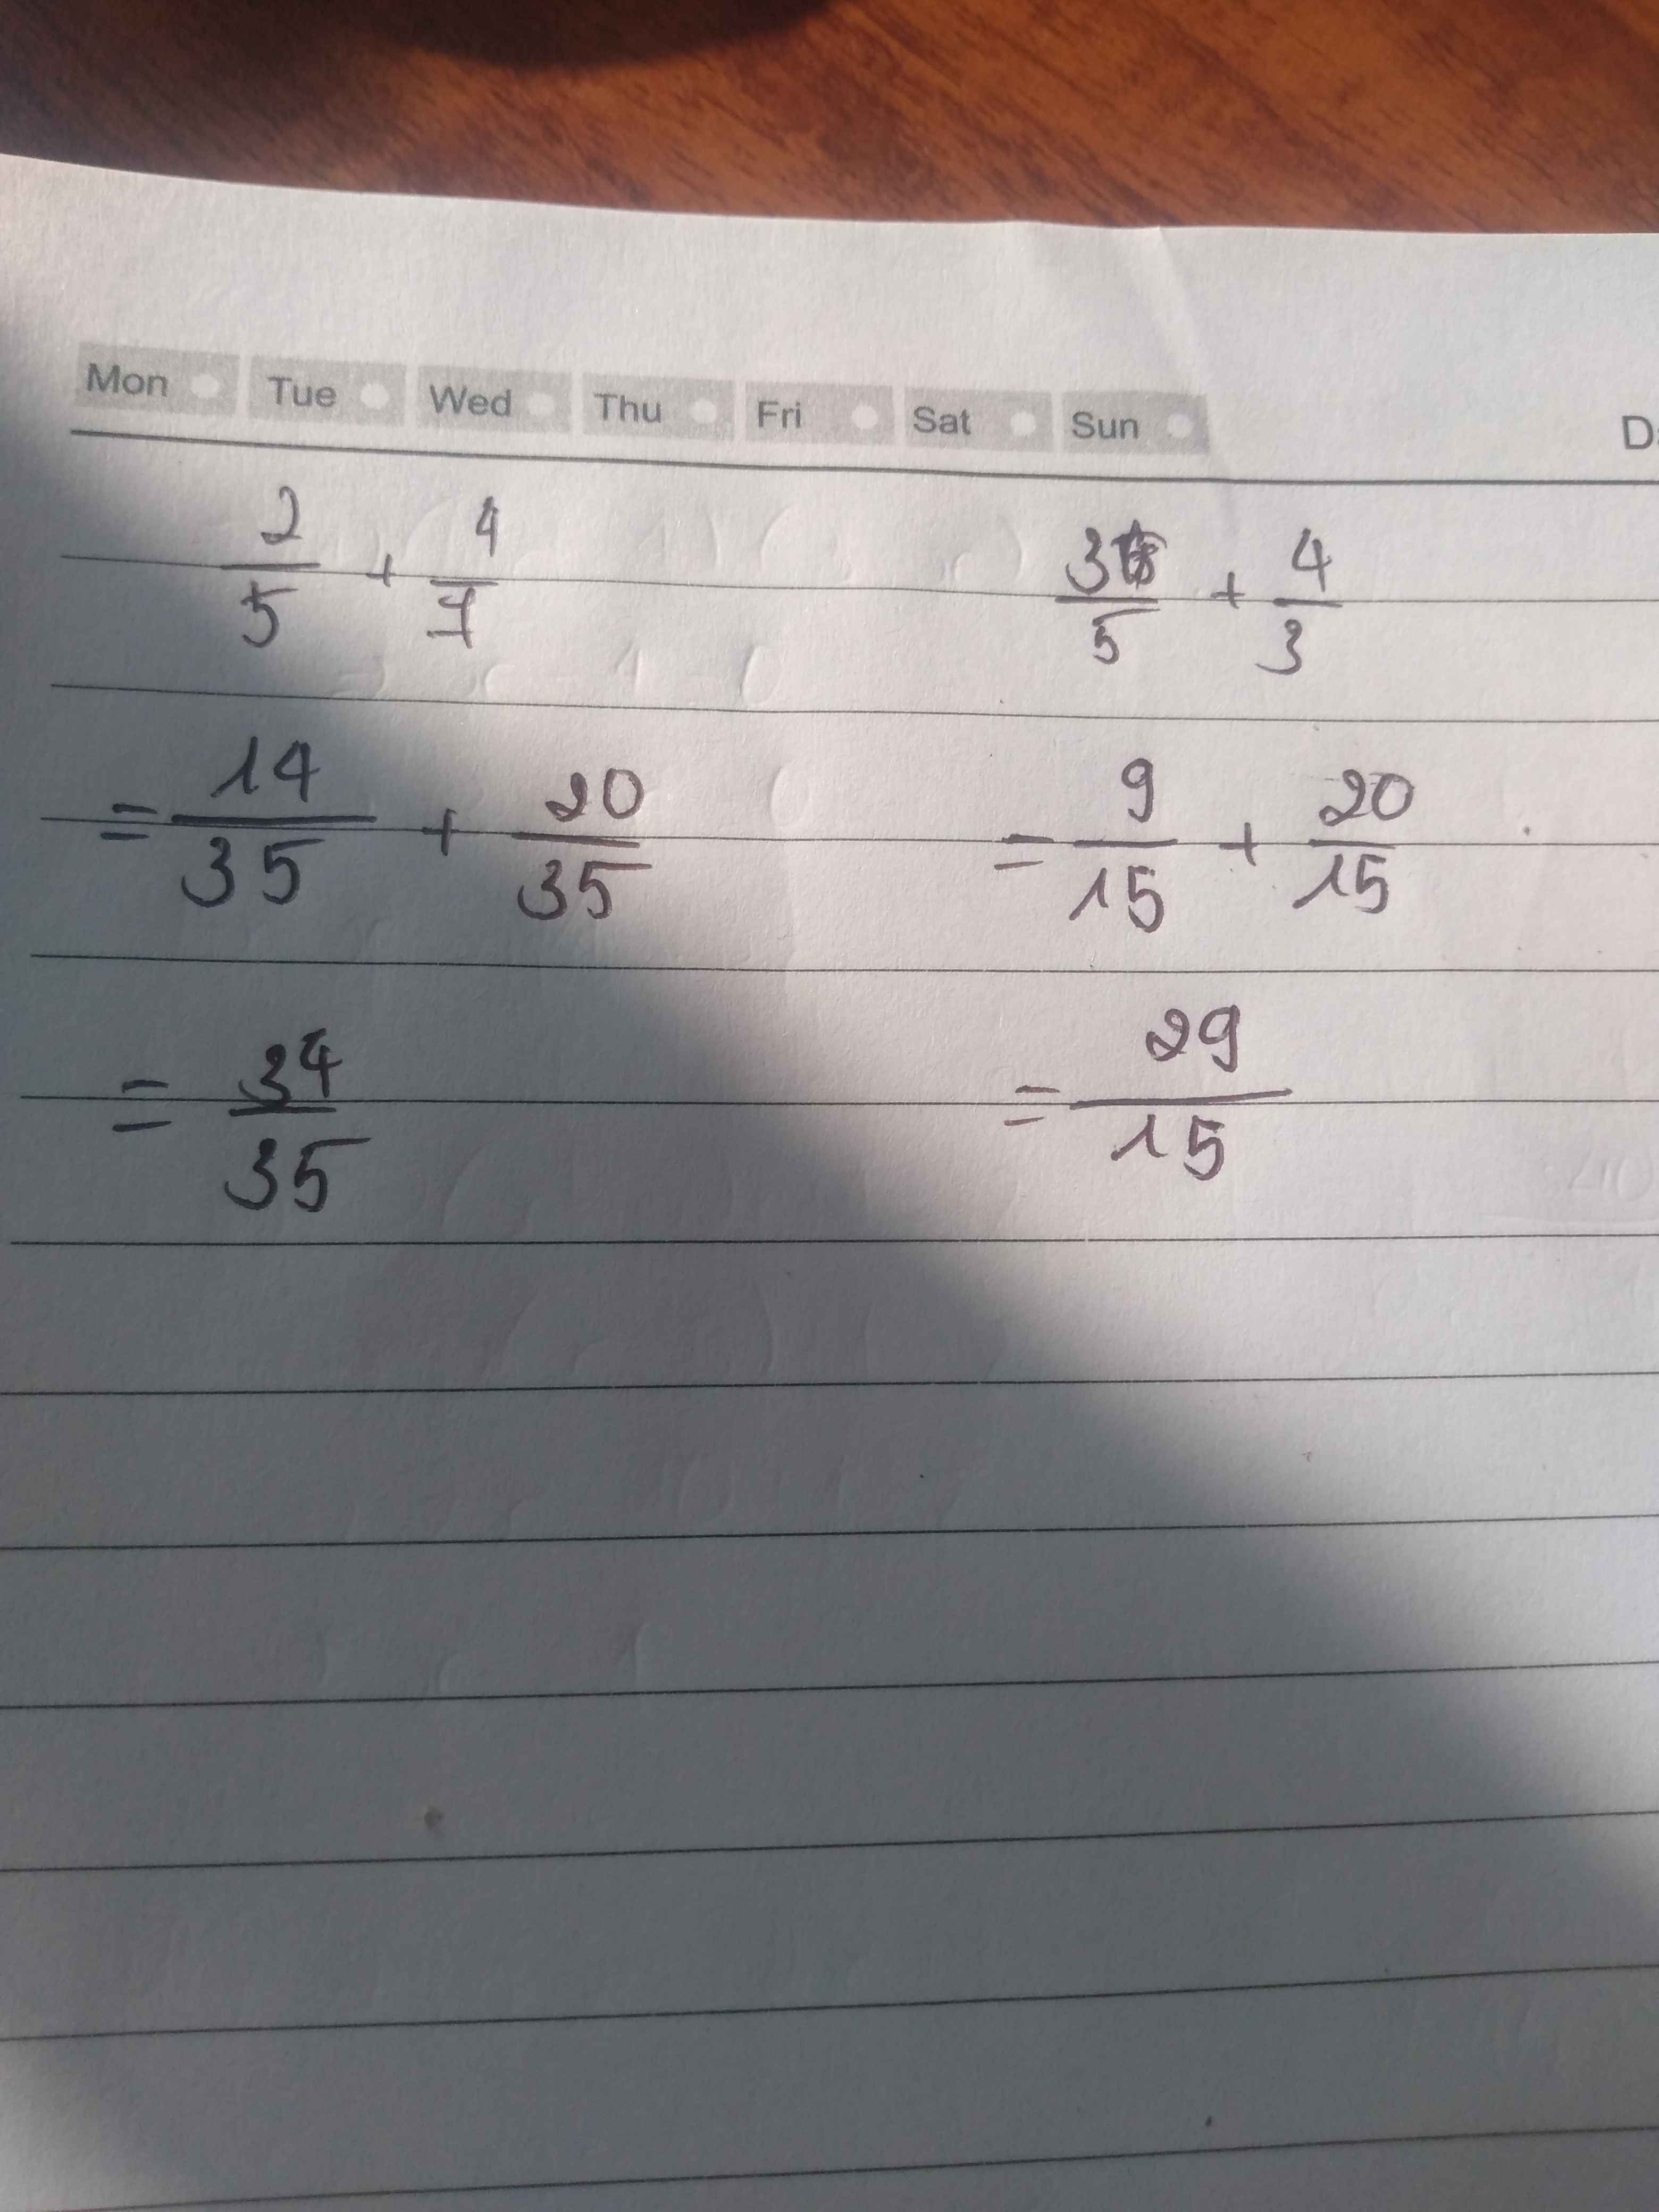 Mon Tue Wed Thu Fri Sat Sun
2/5 + 4/7
= 14/35 + 20/35
= 34/35
3/5 + 4/3
= 9/15 + 20/15
= 29/15